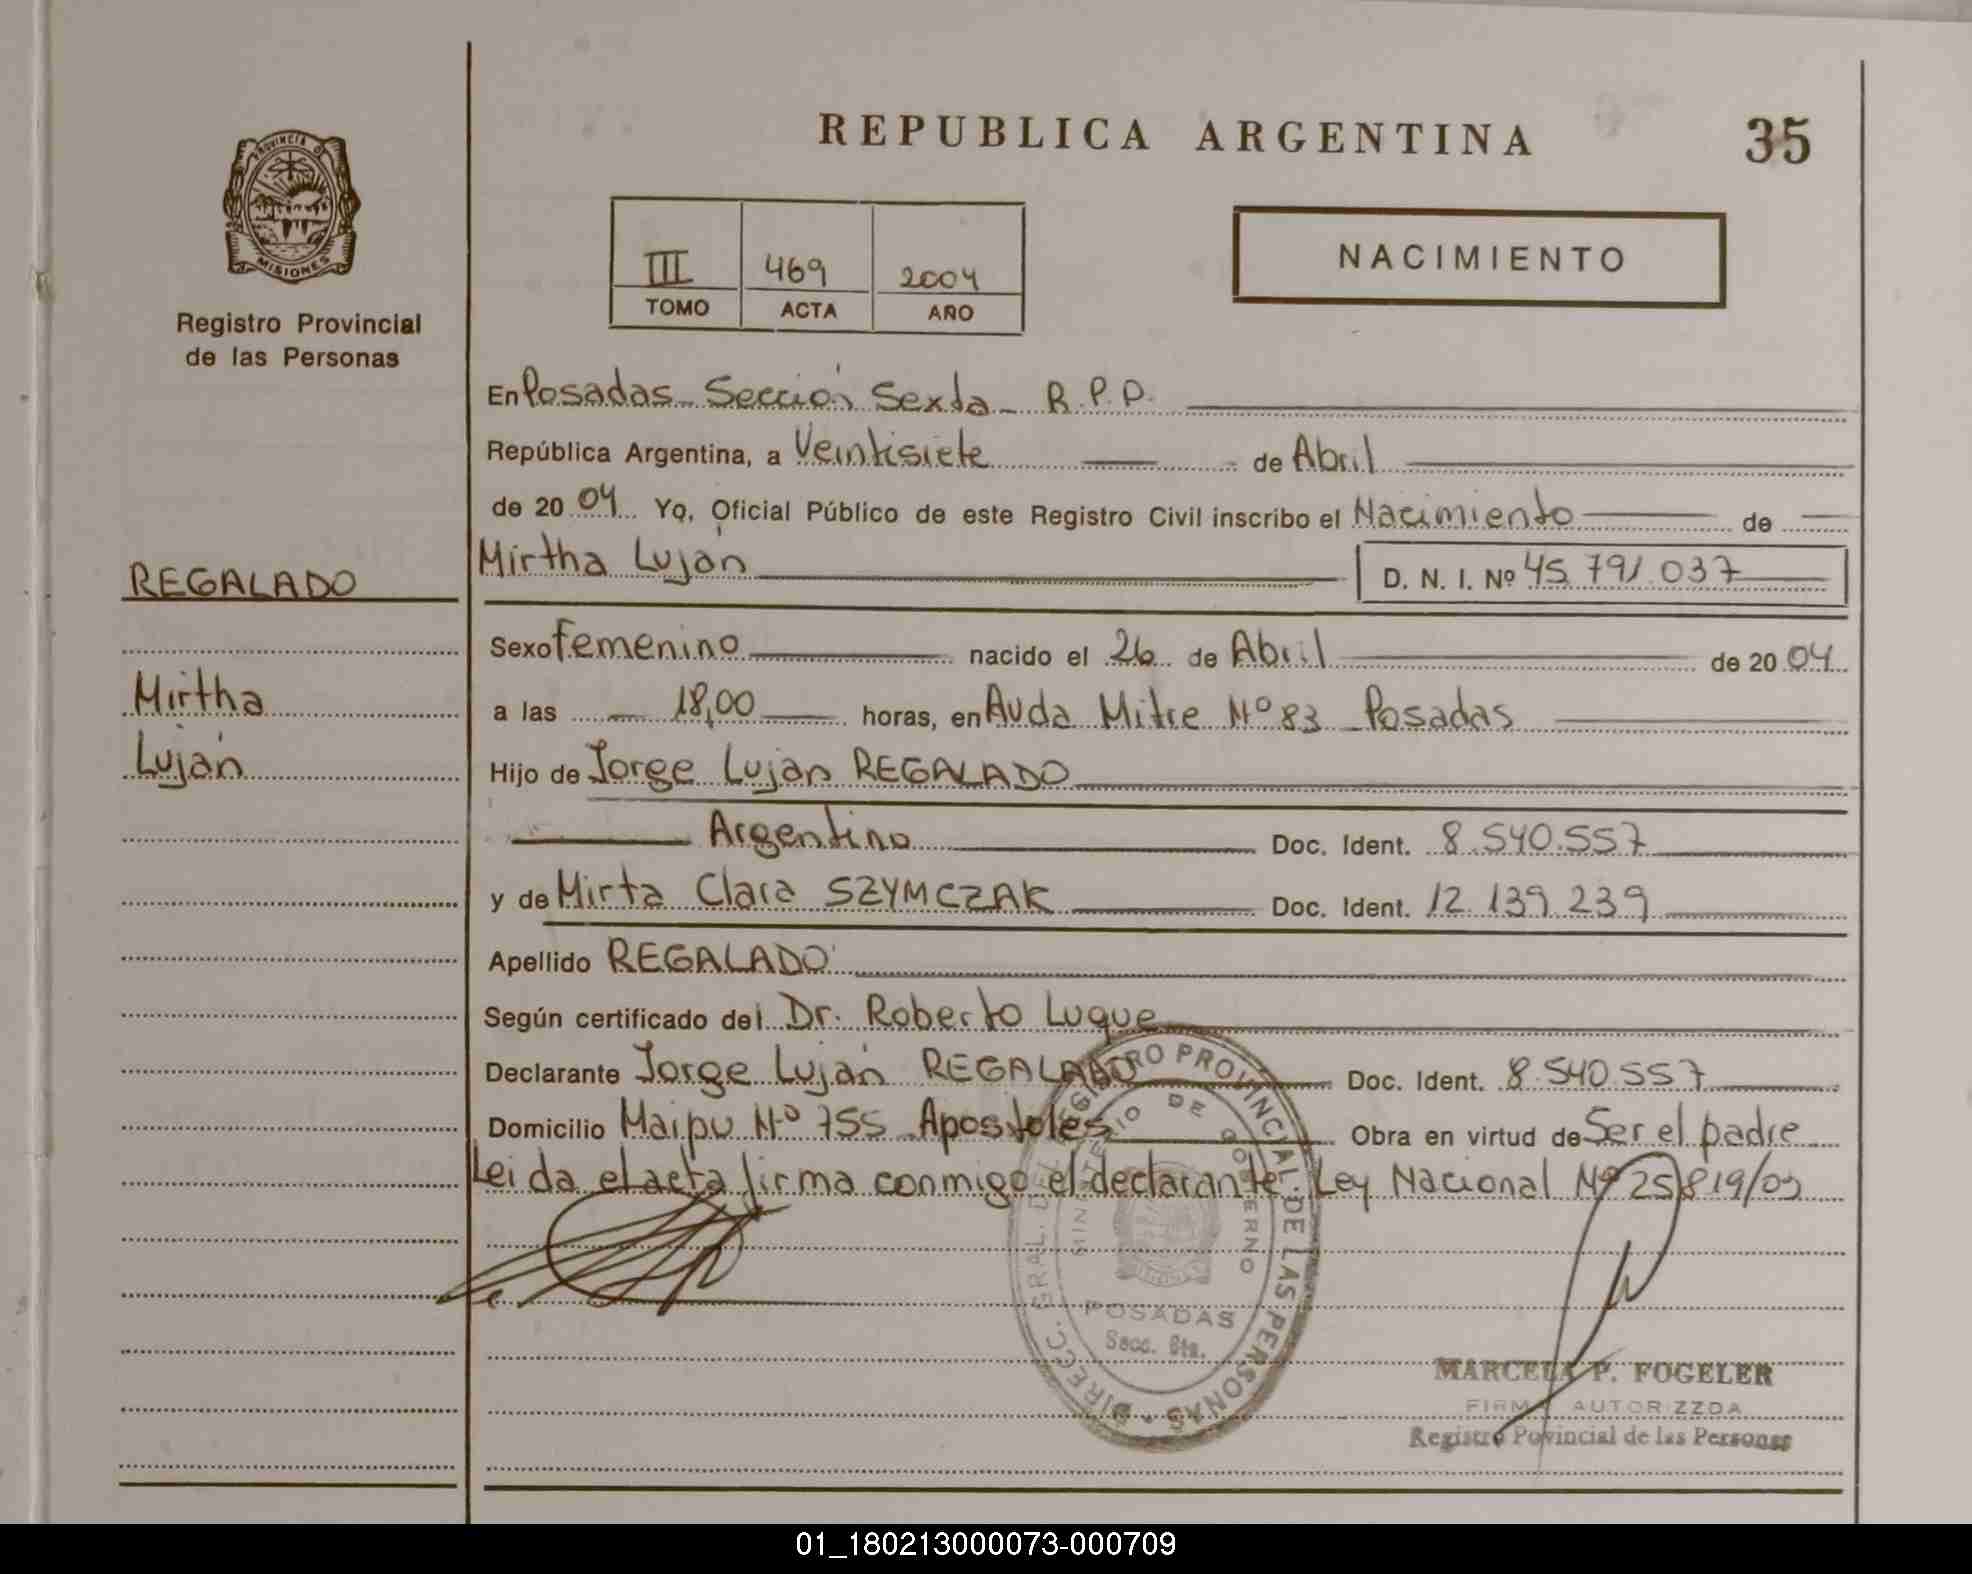 REPUBLICA ARGENTINA
35
PROVINCIA D
MISIONES
Registro Provincial
de las Personas
III 469 2004
TOMO ACTA AÑO
NACIMIENTO
En Posadas - Sección Sexta - R.P.P.
República Argentina, a Veintisiete de Abril
de 2004 Yo, Oficial Público de este Registro Civil inscribo el Nacimiento de
Mirtha Luján D. N. I. Nº 45.791.037
REGALADO
Mirtha
Luján
Sexo Femenino nacido el 26 de Abril de 2004
a las 18,00 horas, en Avda Mitre Nº 83 Posadas
Hijo de Jorge Lujan REGALADO
Argentino Doc. Ident. 8.540.557
y de Mirta Clara SZYMCZAK Doc. Ident. 12.139.239
Apellido REGALADO
Según certificado del Dr. Roberto Luque
Declarante Jorge Luján REGALADO Doc. Ident. 8.540.557
Domicilio Maipu Nº 755 Apostoles Obra en virtud de Ser el padre
Leida el acta firma conmigo el declarante Ley Nacional Nº 25819/03
DIRECC. GRAL. DEL REGISTRO PROVINCIAL DE LAS PERSONAS
MINISTERIO DE GOBIERNO
POSADAS
Secc. 6ta.
MARCELA P. FOGELER
FIRMA AUTORIZZDA
Registro Povincial de las Personas
01_180213000073-000709